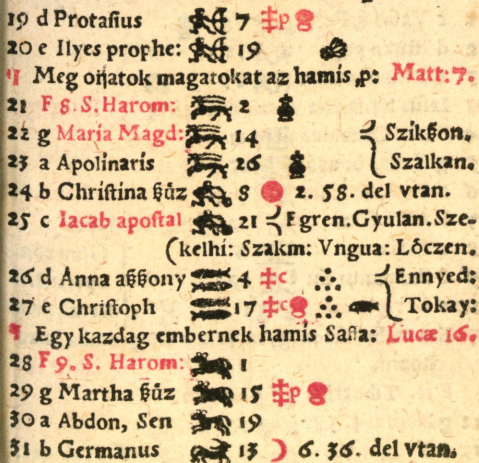 19 d Protaſius 7 ‡p
20 e Ilyes prophe: 19
Meg oȷ́atok magatokat az hamis p: Matt: 7.
21 F 8. S. Harom: 2
22 g Maria Magd: 14 Szikßon.
23 a Apolinaris 26 Szalkan.
24 b Chriſtina ßűz 8 2. 58. del vtan.
25 c Iacab apoſtal 21 Egren. Gyulan. Sze-
(kelhi: Szakm: Vngua: Lőczen.
26 d Anna aßßony 4 ‡c Ennyed:
27 e Chriſtoph 17 ‡c Tokay:
Egy kazdag embernek hamis Safa: Lucæ 16.
28 F 9. S. Harom: 1
29 g Martha ßűz 15 ‡p
30 a Abdon, Sen 19
31 b Germanus 13 ☽ 6. 36. del vtan.